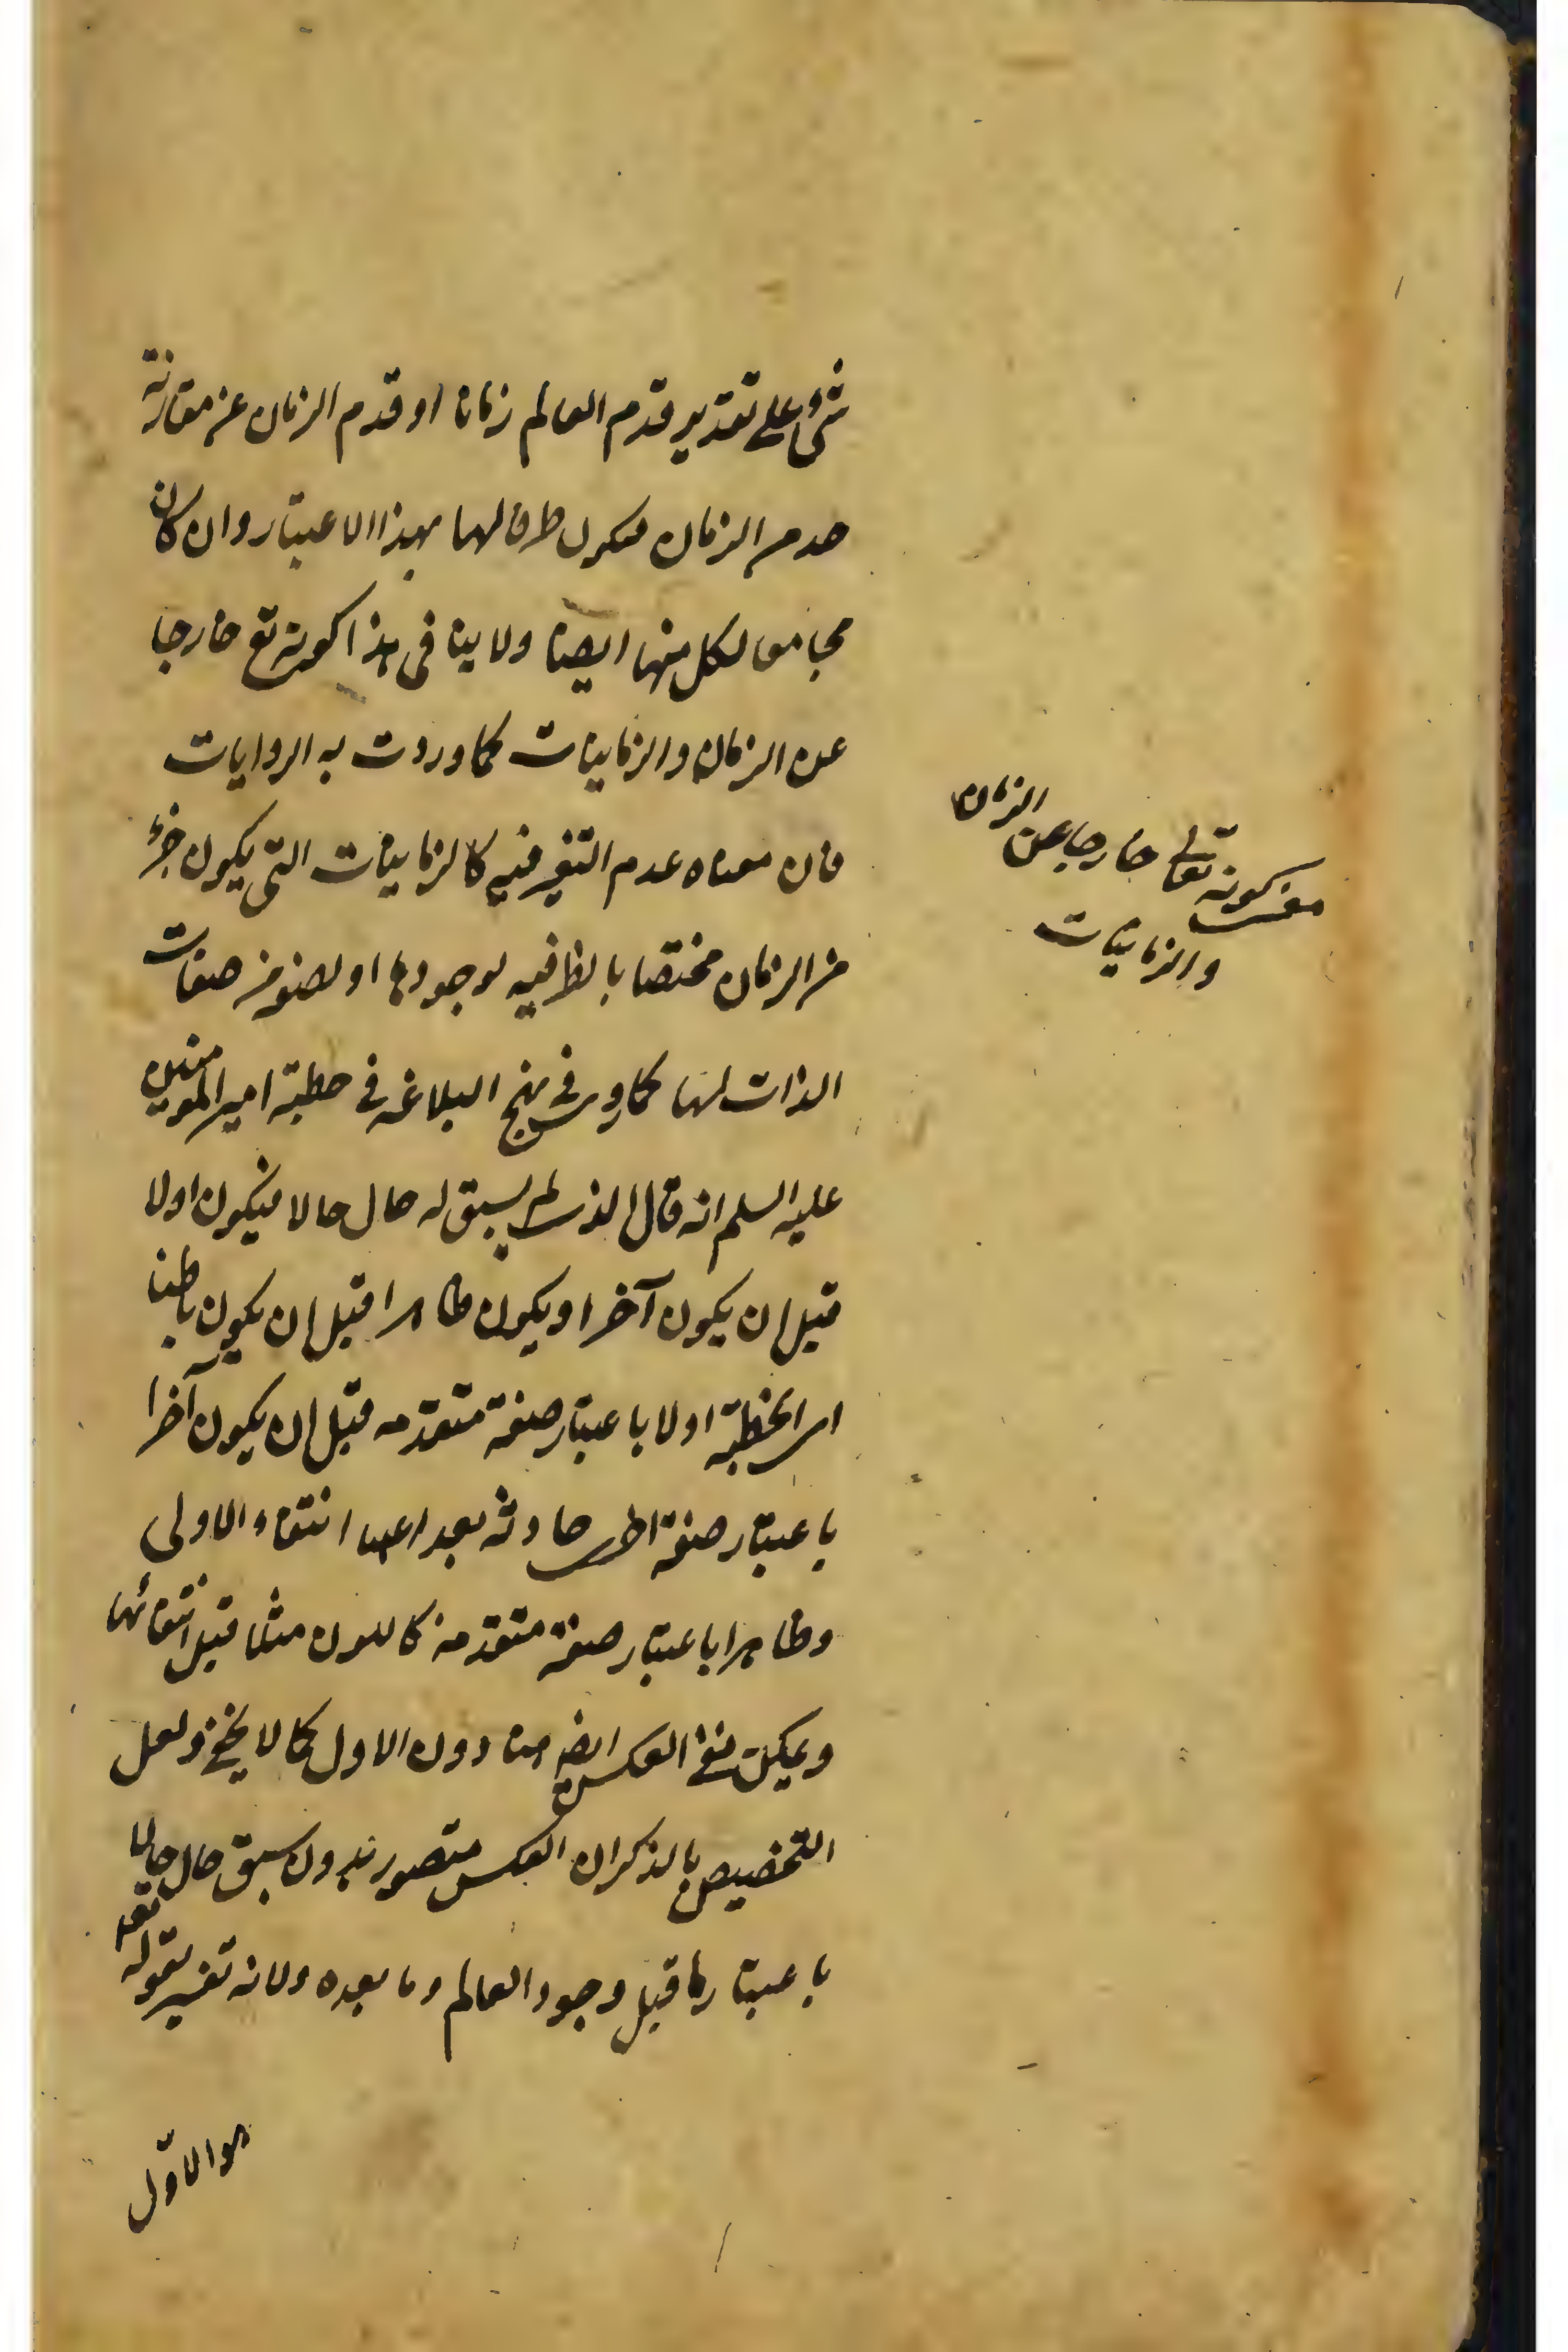 شئ على تقدير قدم العالم زمانا او قدم الزمان عن مقارنة
جزء من الزمان فيكون ظرفا لهما بهذا الاعتبار وان كان
مجامعا لكل منهما ايضا ولا ينافى هذا كونه تع خارجا
عن الزمان والزمانيات كما وردت به الروايات
فان معناه عدم التغير فيه كالزمانيات التى يكون جزء
من الزمان مختصا بالظرفيه لوجودها او لصفة من صفات
الذات لها كما وى فى نهج البلاغه فى خطبة امير المومنين
عليه السلم انه قال الذى لم يسبق له حال حالا فيكون اولا
قبل ان يكون آخرا ويكون ظاهرا قبل ان يكون باطنا
اى الخطبة اولا باعتبار صفة متقدمه قبل ان يكون آخرا
باعتبار صفة اخرى حادثه بعد انتفاء الاولى
وظاهرا باعتبار صفة متقدمة كاللون مثلا قبل انتفائها
ويمكن نفى العكس ايضا هنا دون الاول كما لا يخفى ولعل
التخصيص بالذكر ان العكس متصور بدون سبق حال حالا
باعتبار ما قبل وجود العالم وما بعده ولانه تفسير لقوله تع
هو الاوّل
معنى كونه تعالى خارجا عن الزمان
والزمانيات